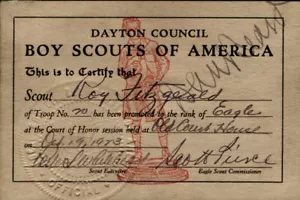 DAYTON COUNCIL
BOY SCOUTS OF AMERICA
This is to Certify that
Scout Roy Fitzgerald
of Troop No. has been promoted by the rank of Eagle
at the Court of Honor session held at Old Court House
on
Scott Pierce
Scout Executive Eagle Scout Commissioner
OFFICIAL